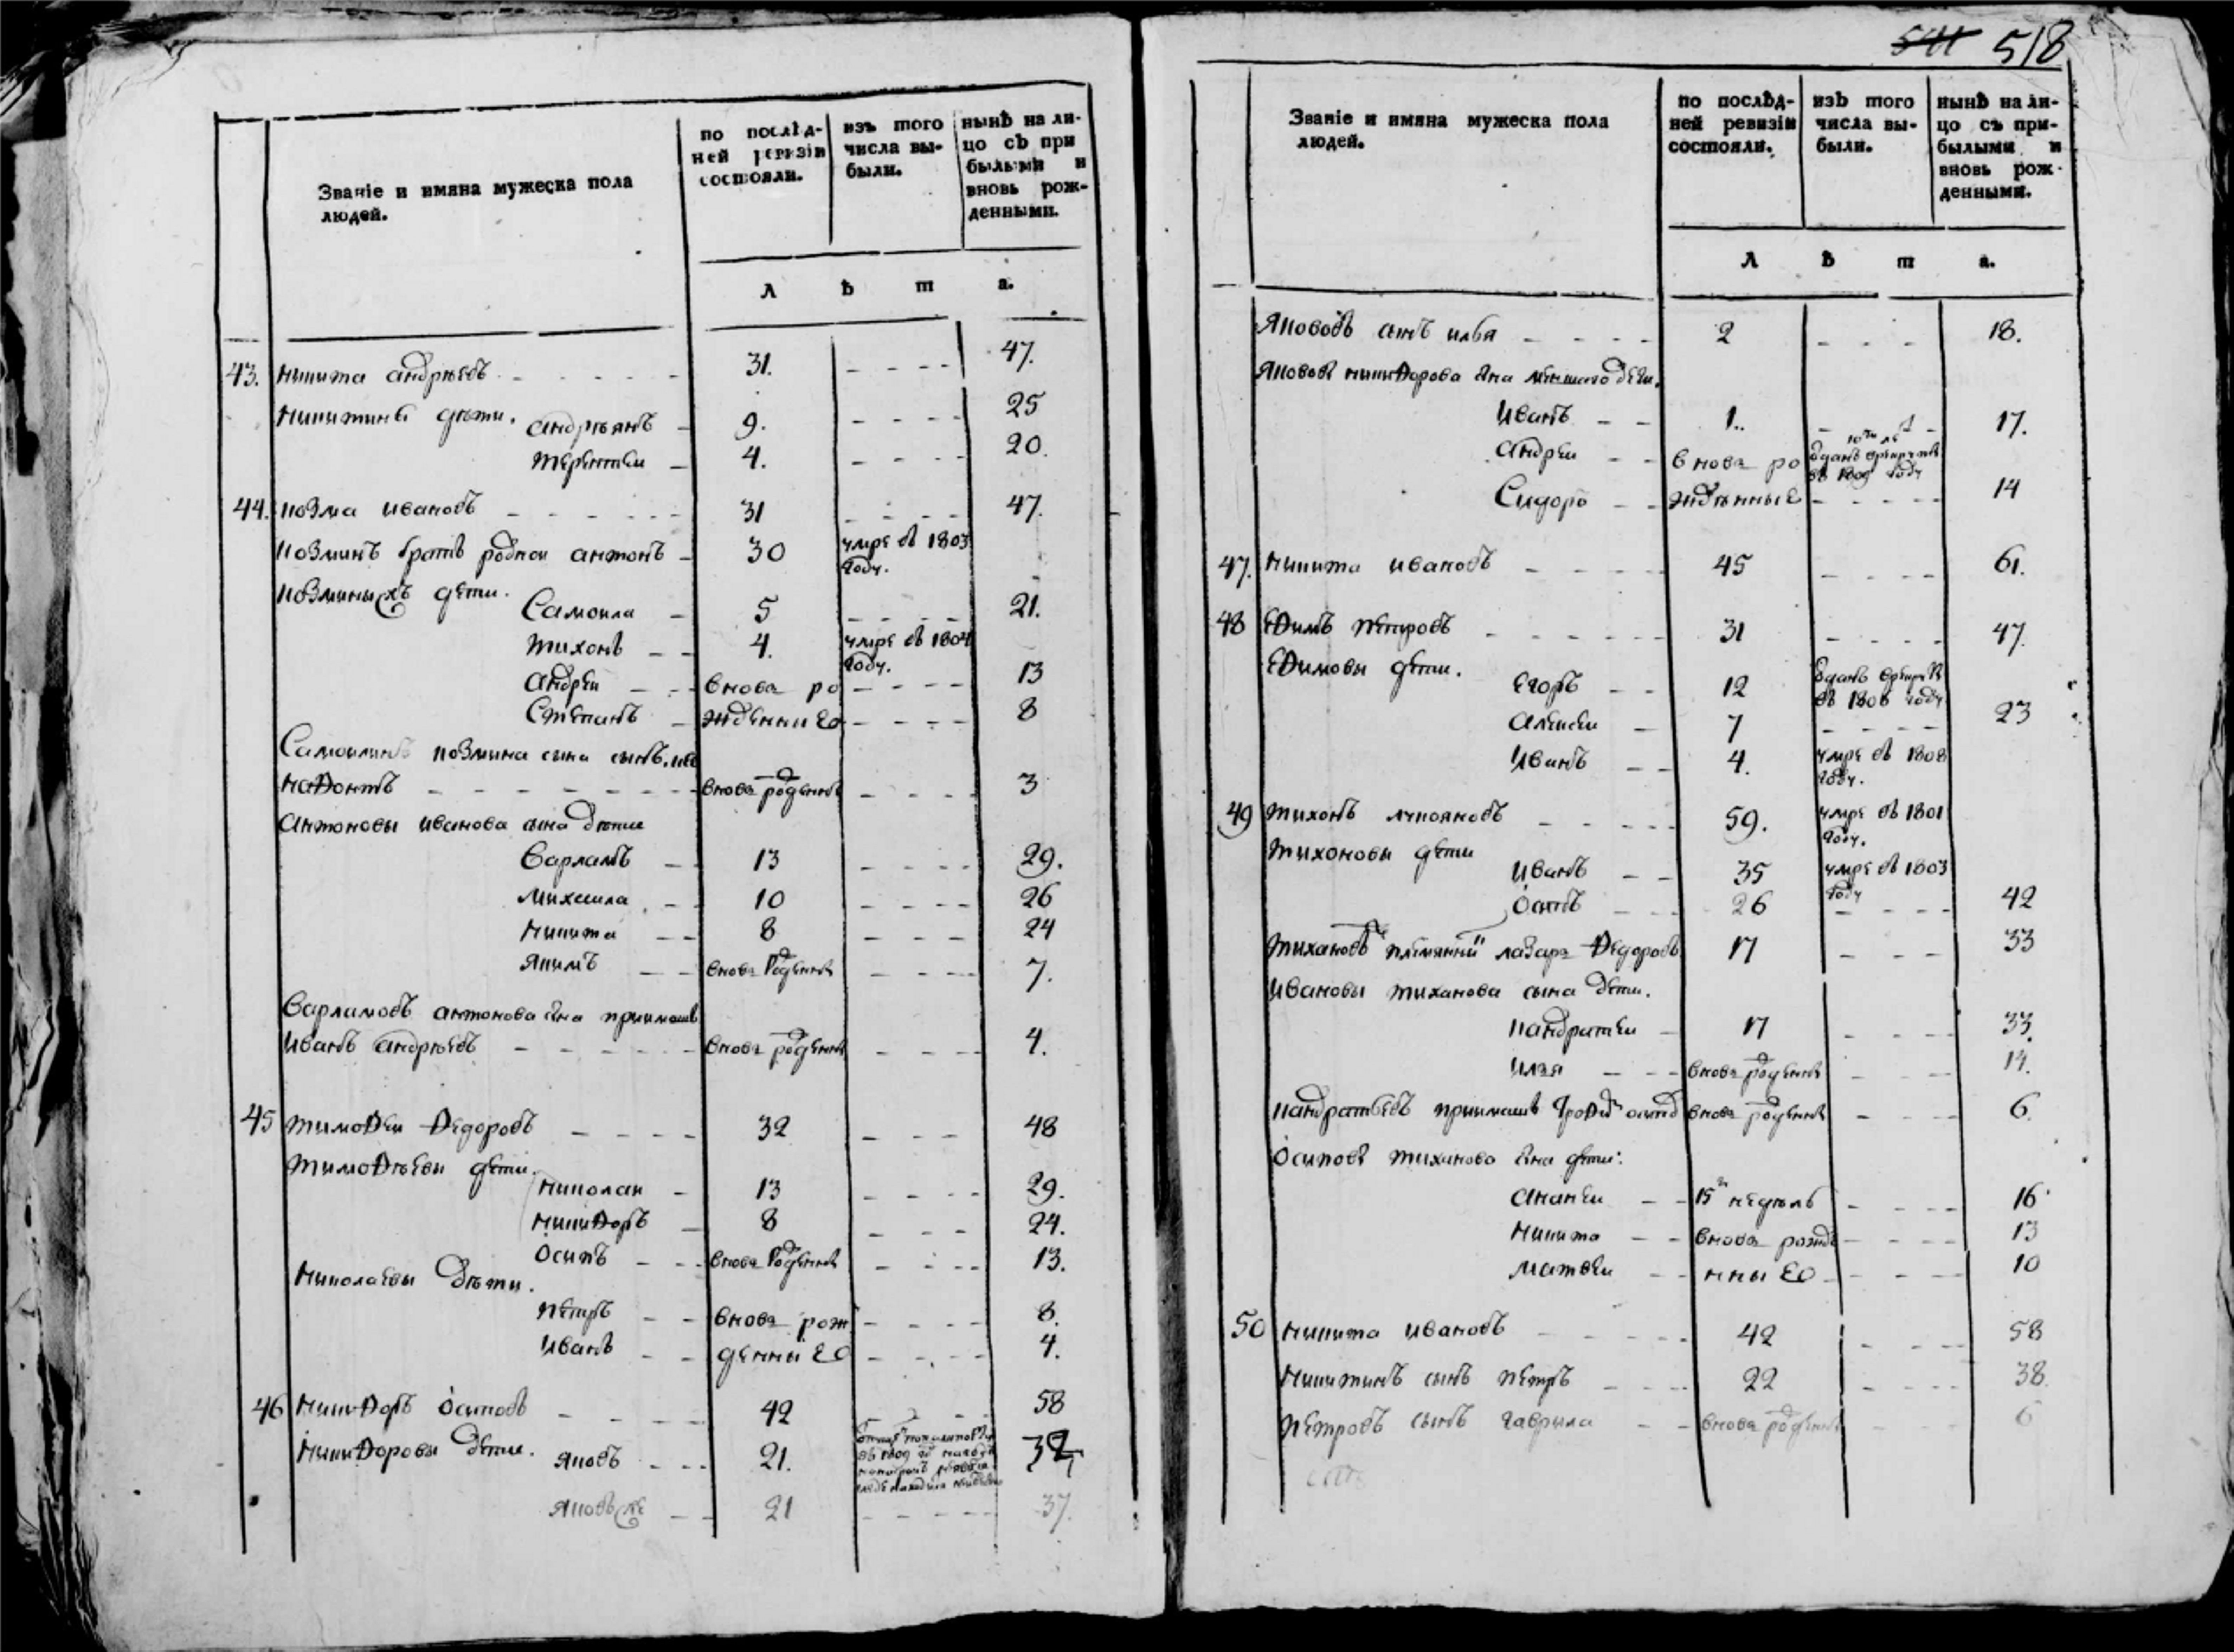 518
Званіе и имяна мужеска пола
людей.
по послѣд-
ней ревизіи
состояли.
изъ того
числа вы-
были.
нынѣ на ли-
цо съ при
былыми и
вновь рож-
денными.
л ѣ т а.
43. никита андрѣевъ 31. 47.
никитины дѣти. андреянъ 9. 25
терентеи 4. 20.
44. козма ивановъ 31 47.
козминъ братъ роднои антонъ 30 умре въ 1803 году.
козминыхъ дѣти. Самоила 5 21.
тихонъ 4. умре въ 1804 году.
андреи вновь ро 13
Степанъ жденные 8
Самоилинъ козмина сына сынъ
вновь рожденнъ 3
антоновы иванова сына дѣти
варламъ 13 29.
михаила 10 26
никита 8 24
якимъ вновь рожденнъ 7.
варламовъ антонова сна приимашъ
иванъ андрѣевъ вновь рожденнъ 4.
45 тимоѳеи ѳедоровъ 32 48
тимоѳѣевы дѣти.
николаи 13 29.
никиѳоръ 8 24.
осипъ вновь рожденнъ 13.
николаевы дѣти.
петръ вновь рож 8.
иванъ денные 4.
46 никиѳоръ осиповъ 42 58
никиѳоровы дѣти. яковъ 21.
яковъ же 21 37.
Званіе и имяна мужеска пола
людей.
по послѣд-
ней ревизіи
состояли.
изъ того
числа вы-
были.
нынѣ на ли-
цо съ при-
былыми и
вновь рож-
денными.
л ѣ т а.
якововъ сынъ илья 2 18.
яковы никиѳорова сна меншаго дети.
иванъ 1. 17.
андреи вновь ро отданъ в рекруты въ 1809 году
Сидоръ жденные 14
47. никита ивановъ 45 61.
48 еѳимъ петровъ 31 47.
еѳимовы дети. егоръ 12 отданъ в рекруты въ 1806 году
алексеи 7 23
иванъ 4. умре въ 1808 году.
49 тихонъ лукояновъ 59. умре въ 1801 году.
тихоновы дети
иванъ 35 умре въ 1803 году
осипъ 26 42
тихановъ племянникъ лазарь ѳедоровъ 17 33
ивановы тиханова сына дети.
кандратеи 17 33.
илья вновь рожденнъ 14.
кандратьевъ приимашъ вновь рожденнъ 6.
осиповы тиханова сна дети:
ананеи 15 недѣль 16
никита вновь рожде 13
матвеи нные 10
50 никита ивановъ 42 58
никитинъ сынъ петръ 22 38.
петровъ сынъ гаврила вновь рожденнъ 6